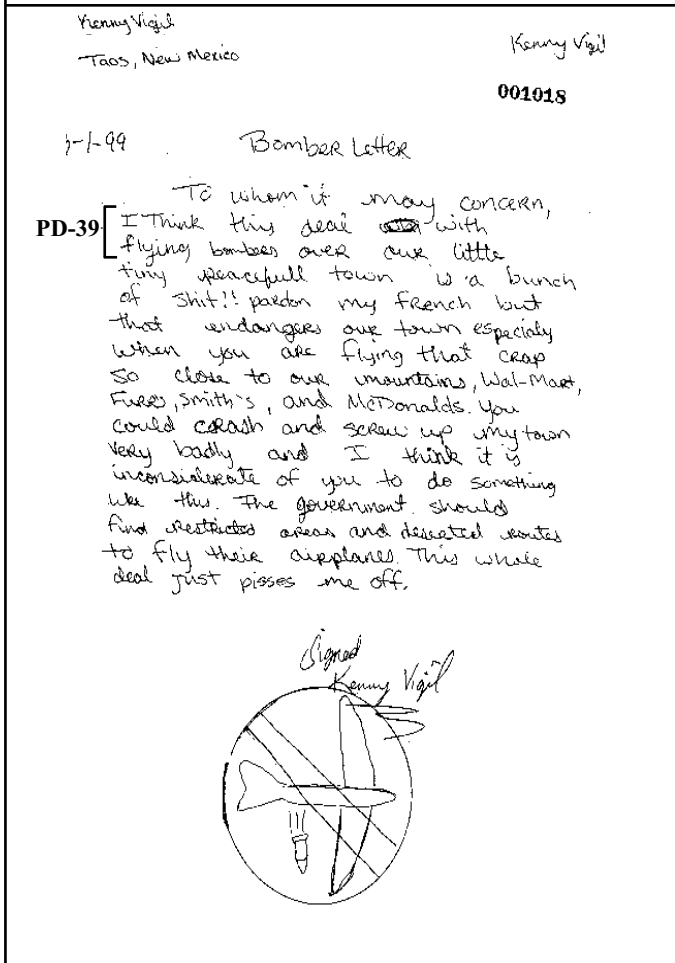 Kenny Vigil
Taos, New Mexico
Kenny Vigil
001018
-1-99
Bomber Letter
To whom it may concern,
PD-39
I Think this deal with
flying bombers over our little
tiny peacefull town is a bunch
of shit!! pardon my French but
that endangers our town especialy
when you are flying that crap
so close to our mountains, Wal-Mart,
Furrs, Smith's, and McDonalds. You
could crash and screw up my town
very badly and I think it is
inconsiderate of you to do something
like this. The government should
find restricted areas and deserted routes
to fly their airplanes. This whole
deal just pisses me off.
Signed
Kenny Vigil